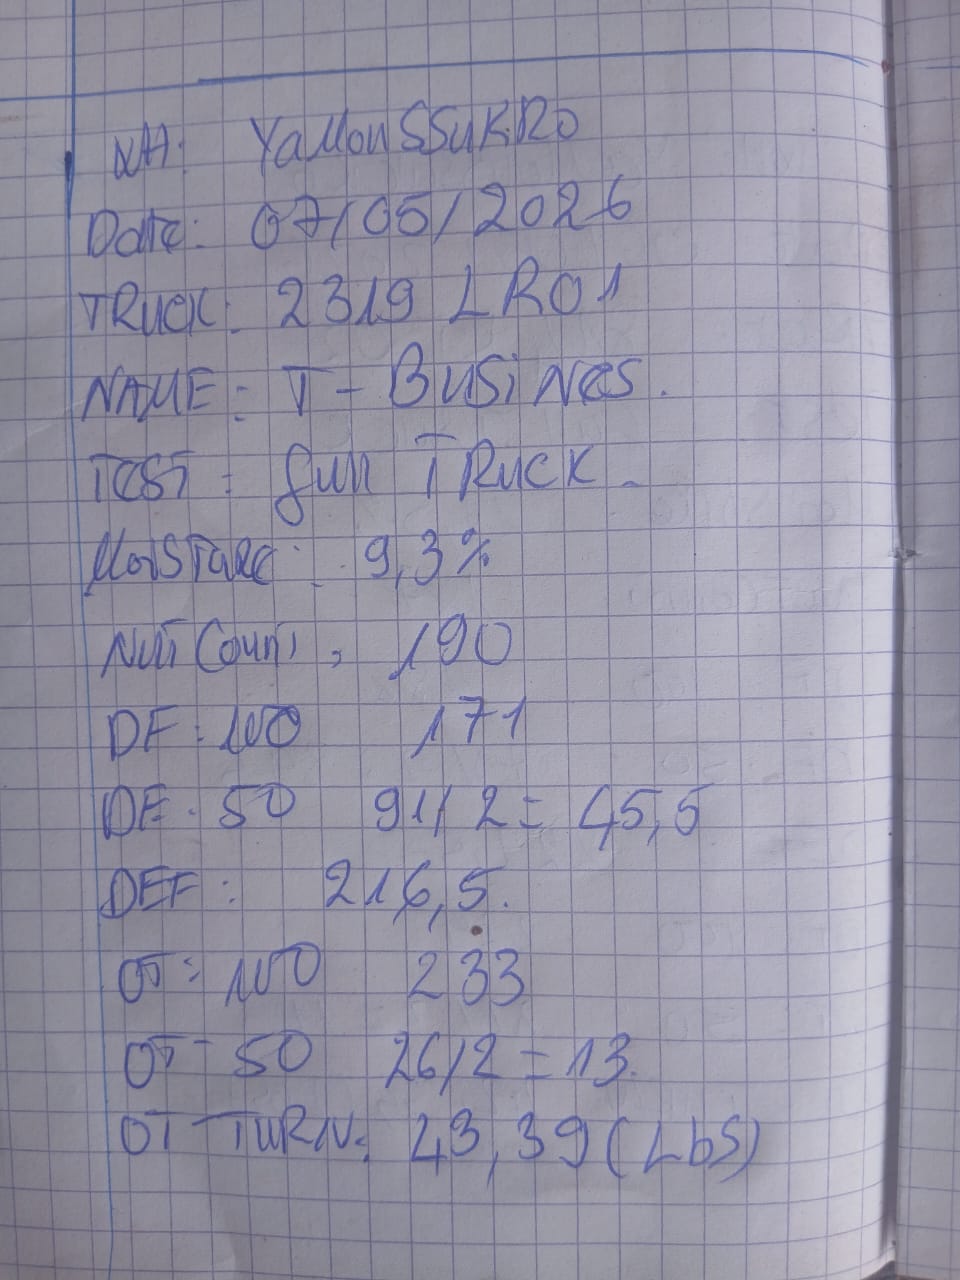 WH: YaMouSSuKRO
Date: 07/05/2026
TRucK: 2319 LR01
NAME: T-BusiNes.
TesT: full TRucK.
MoisTuRe: 9,3%
NuT Count: 190
DF: 100 171
DF: 50 91/2 = 45,5
DEF: 216,5.
OT: 100 233
OT- 50 26/2 = 13.
OT TuRN: 43,39 (LbS)